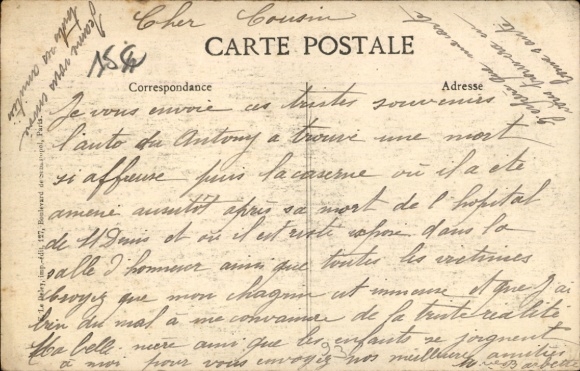 Cher Cousin
CARTE POSTALE
154
Correspondance
Adresse
Je vous envoie ces tristes souvenirs
l'auto du Antony a trouvé une mort
si affreuse puis la caserne où il a été
amené aussitôt après sa mort de l'hopital
de St Denis et où il est resté dans la
salle d'honneur ainsi que toutes les victimes
croyez que mon chagrin est immense et que j'ai
bien du mal a me convaincre de la triste réalité
Ma belle mère ainsi que les enfants se joignent
à moi pour vous envoyer nos meilleures amitiés
Jeanne vous envoie
toutes ses amitiés
ma carte
bonne santé
imp.-édit., 127, Boulevard de Sébastopol, Paris